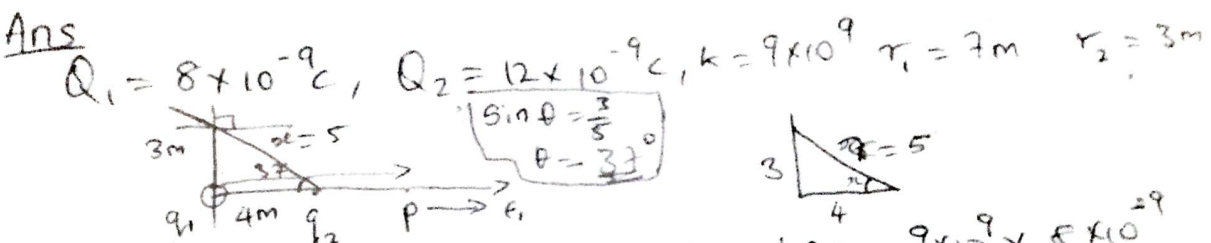 Ans
Q₁ = 8 × 10⁻⁹ C, Q₂ = 12 × 10⁻⁹ C, k = 9×10⁹ r₁ = 7m r₂ = 3m
sin θ = 3/5
θ = 37°
3m x = 5
37
q₁ 4m q₂ P → E₁
3 = 5
x
4
9×10⁹ × 8 × 10⁻⁹